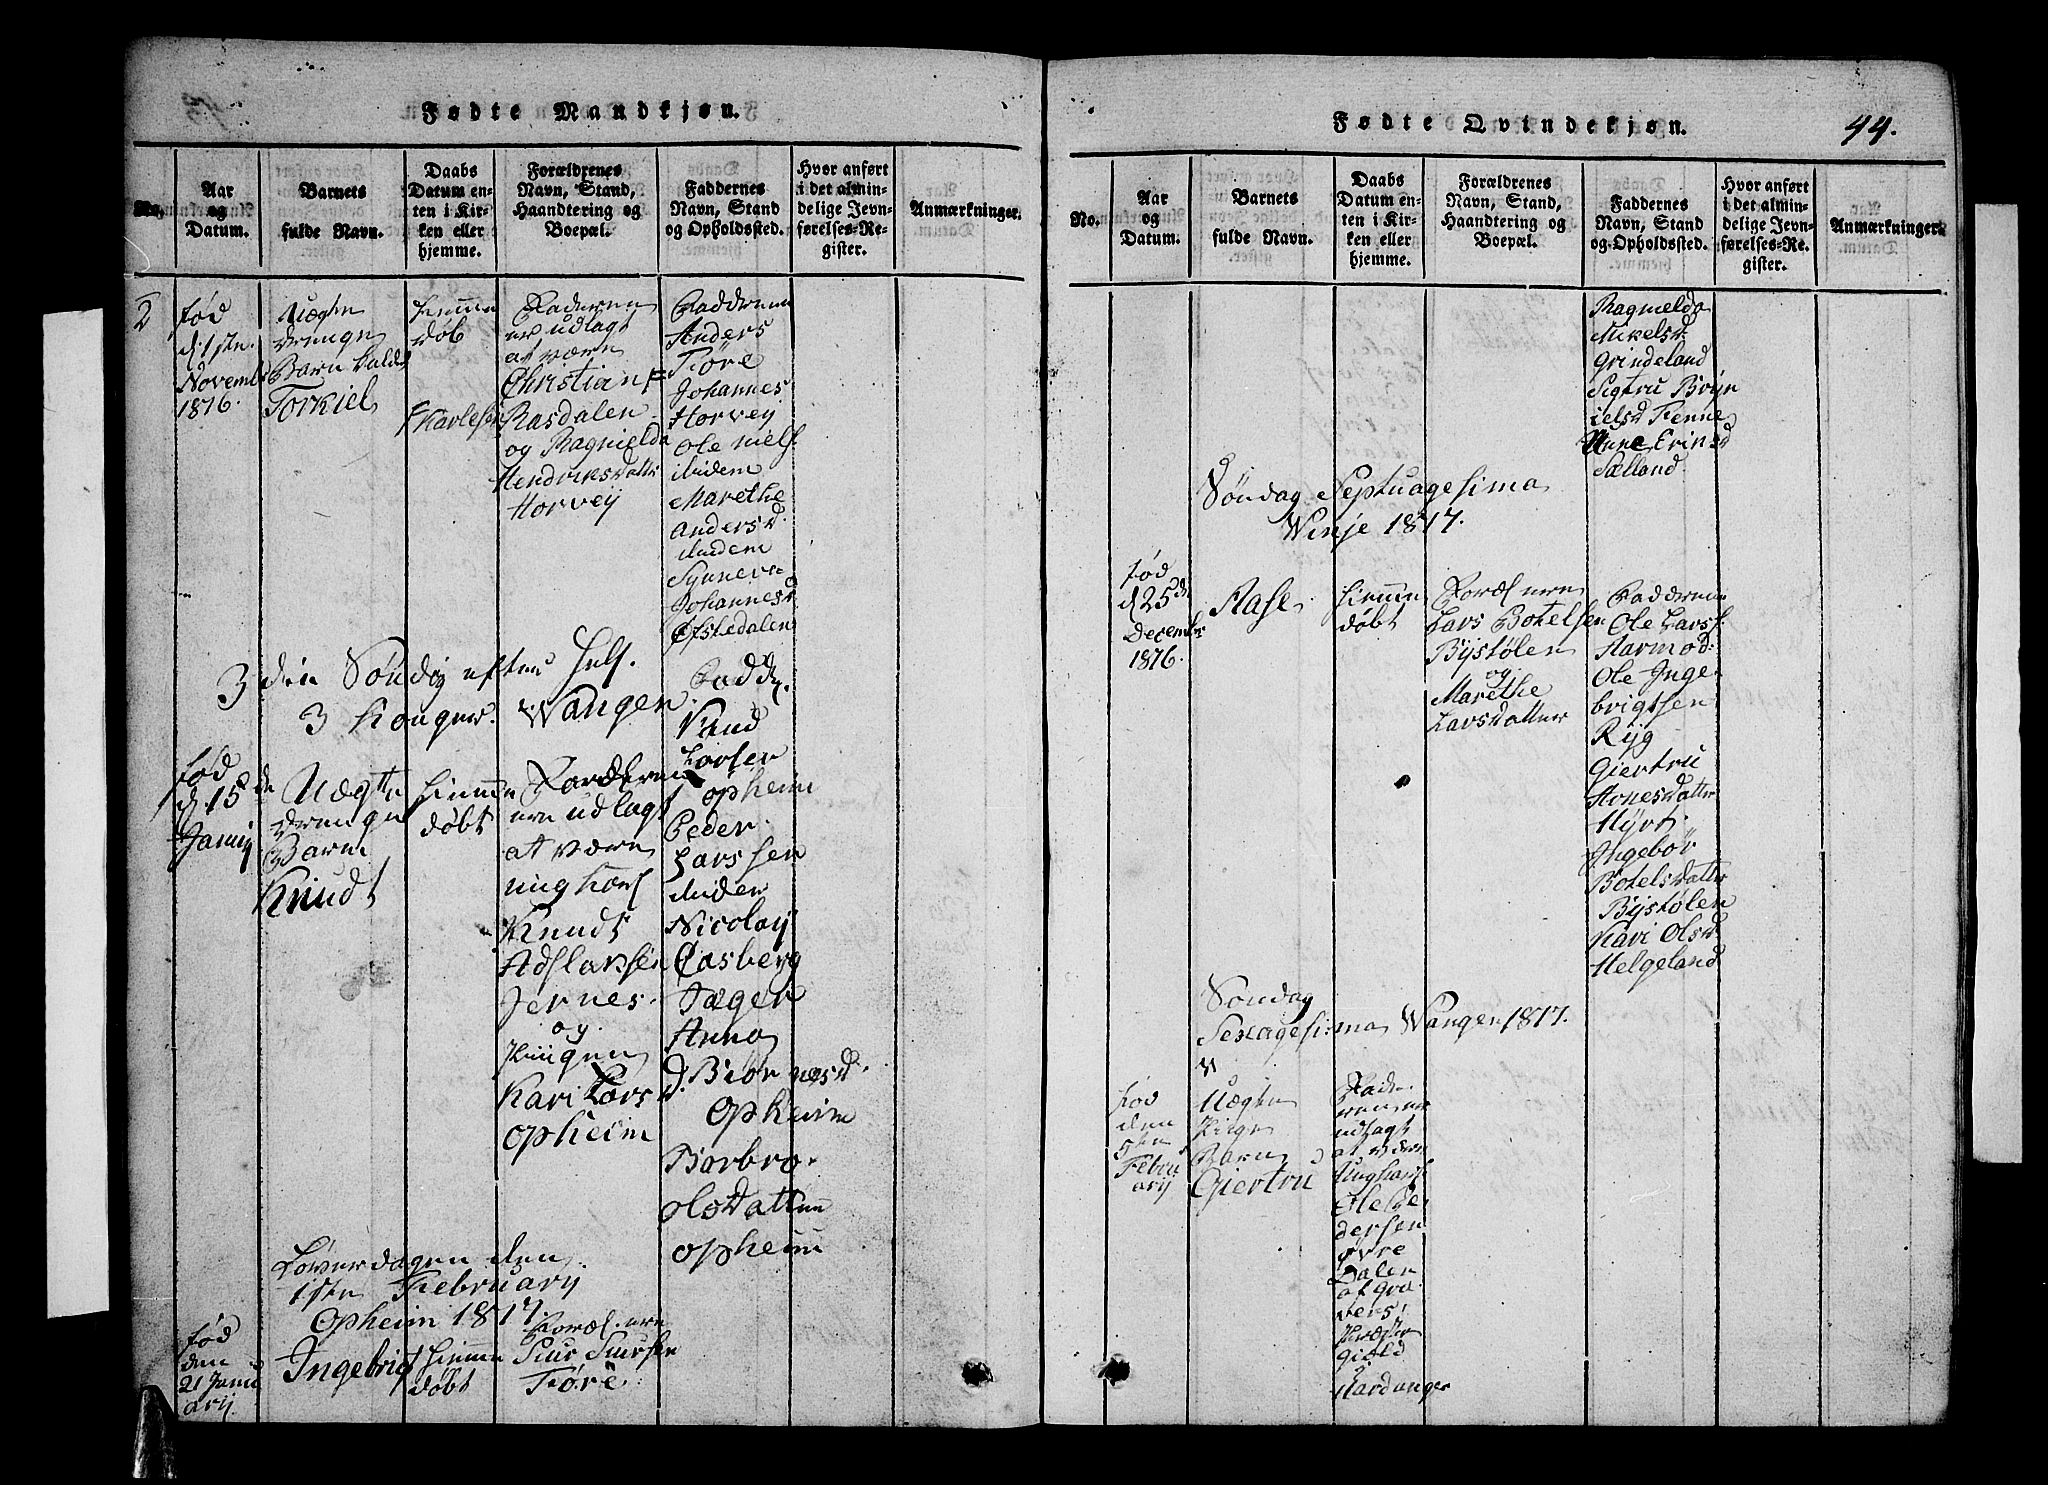 Fødte Mandkjøn.
No.
Aar
og
Datum.
Barnets
fulde Navn.
Daabs
Datum en-
ten i Kir-
ken eller
hjemme.
Forældrenes
Navn, Stand,
Haandtering og
Boepæl.
Faddernes
Navn, Stand
og Opholdssted.
Hvor anført
i det almin-
delige Jevn-
førelses-Re-
gister.
Anmærkninger.
2
fød
d. 1ste
Novemb
1816.
Uægte
drenge
Barn kaldet
Torkiel
hiemme
døb
Faderen
er udlagt
at være
Christian
Karlesen
Rasdalen
og Ragnielda
Hendriksdatter
Horvey
Fadderne
Anders
Føre
Johannes
Horvey
Ole Niels.
ibidem
Marethe
Andersd.
ibidem
Synneva
Johannesd
Øfstedalen
3die Søndag efter Hel.
3 Konger. Wangen.
fød
d 15de
Januarij
Uægte
drenge
Barn
Knudt
hiemme
døbt
Forældrene
ere udlagt
at være
ungkarl
Knudt
Adslaksen
Jernes.
og
Pigen
Kari Larsd.
Opheim
Fadde.
Knud
Larsen
Opheim
Peder
Larssen
ibidem
Nicolay
Casberg
Jæger
Anna
Biørnesd.
Opheim
Barbro
Olsdatter
Opheim
Løverdagen den
1ste February
Opheim 1817.
fød
den
21 Janu
ary.
Ingebrigt
hiemme
døbt
Foræl.erne
Siur Siursen
Føre
Fødte Qvindekjøn.
44.
No.
Aar
og
Datum.
Barnets
fulde Navn.
Daabs
Datum en-
ten i Kir-
ken eller
hjemme.
Forældrenes
Navn, Stand,
Haandtering og
Boepæl.
Faddernes
Navn, Stand
og Opholdsted.
Hvor anført
i det almin-
delige Jevn-
førelses-Re-
gister.
Anmærkninger.
Ragnielda
Mikelsd
Grindeland
Sigtru Bryn
ielsd Fenne
Anne Erinsd
Sælland.
Søndag Septuagesima
Winje 1817.
fød
d 25de
December
1816.
Aase
hiemme
døbt
Foræl.erne
Lars Botelsen
Bystølen
og
Marethe
Larsdatter
Fadderne
Ole Larss.
Aarmod.
Ole Inge
brigtsen
Ryg
Giertru
Aonesdatter
Myrk.
Ingebør
Botelsdatter
Bystølen
Kari Olsd
Helgeland
Søndag
Sexagesima Wangen 1817.
fød
den
5te
Febru
ary
Uægte
Pige
Barn
Giertru
Fade
ren er
udlagt
at være
Ungkarl
Ole Pe
dersen
øvre
Dalen
af Gra
vens
Præste
gield
i
Hardanger